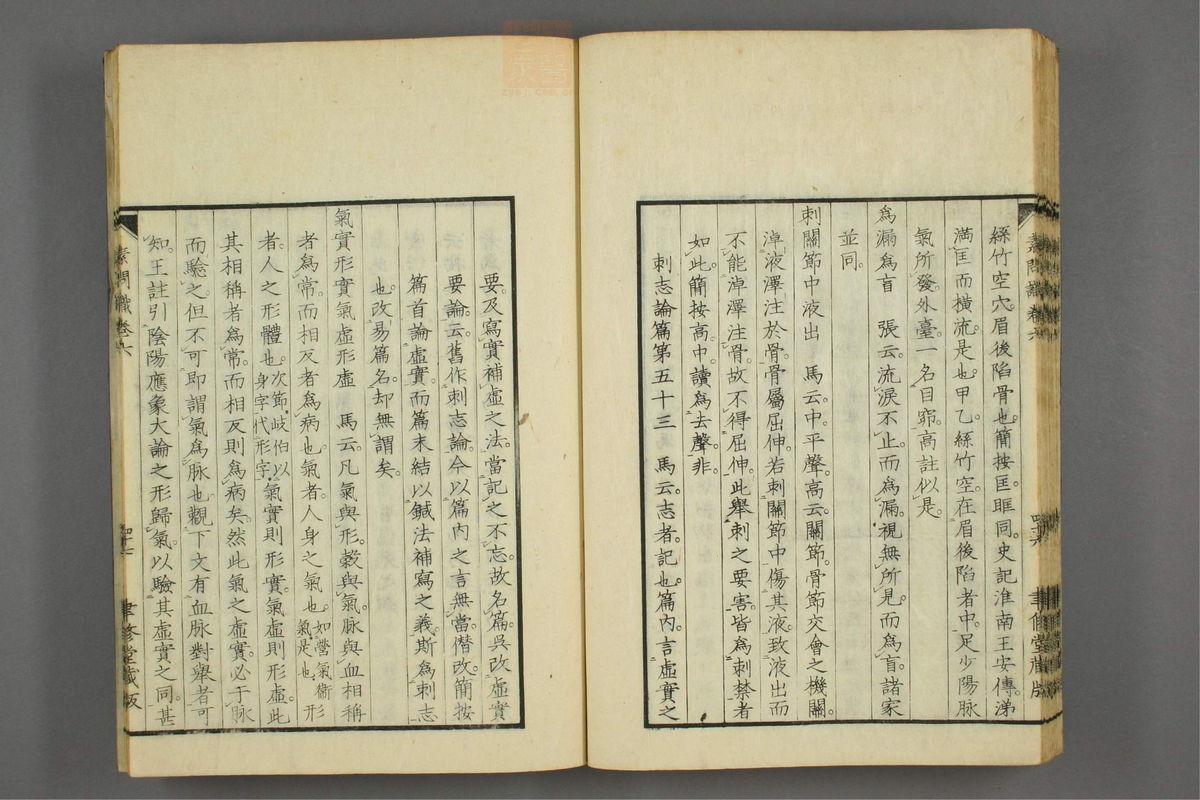 絲竹空穴。眉後陷骨也。簡按匡眶同。史記淮南王安傳。涕
滿匡而橫流。是也。甲乙。絲竹空在眉後陷者中。足少陽脈
氣所發。外臺一名目窌。高註似是。
爲漏爲盲　張云。流淚不止而爲漏。視無所見而爲盲。諸家
並同。
刺關節中液出　馬云。中平聲。高云。關節。骨節交會之機關。
淖液澤注於骨。骨屬屈伸。若刺關節中傷其液。致液出而
不能淖澤注骨。故不得屈伸。此舉刺之要害。皆爲刺禁者
如此。簡按高中讀爲去聲。非。
刺志論篇第五十三　馬云。志者。記也。篇內言虛實之
素問識卷六
四十六
聿修堂藏版
要。及寫實補虛之法。當記之不忘。故名篇。吳改虛實
要論。云。舊作刺志論。今以篇內之言無當。僭改。簡按
篇首論虛實。而篇末結以鍼法補寫之義。斯爲刺志
也。改易篇名。却無謂矣。
氣實形實氣虛形虛　馬云。凡氣與形。穀與氣。脈與血相稱
者爲常。而相反者爲病也。氣者。人身之氣也。如營氣衛氣是也。形
者。人之形體也。次節。岐伯以身字代形字。氣實則形實。氣虛則形虛。此
其相稱者爲常。而相反則爲病矣。然此氣之虛實。必于脈
而驗之。但不可即謂氣爲脈也。觀下文有血脈對舉者可
知。王註引陰陽應象大論之形歸氣。以驗其虛實之同。甚
素問識卷六
四十七
聿修堂藏版